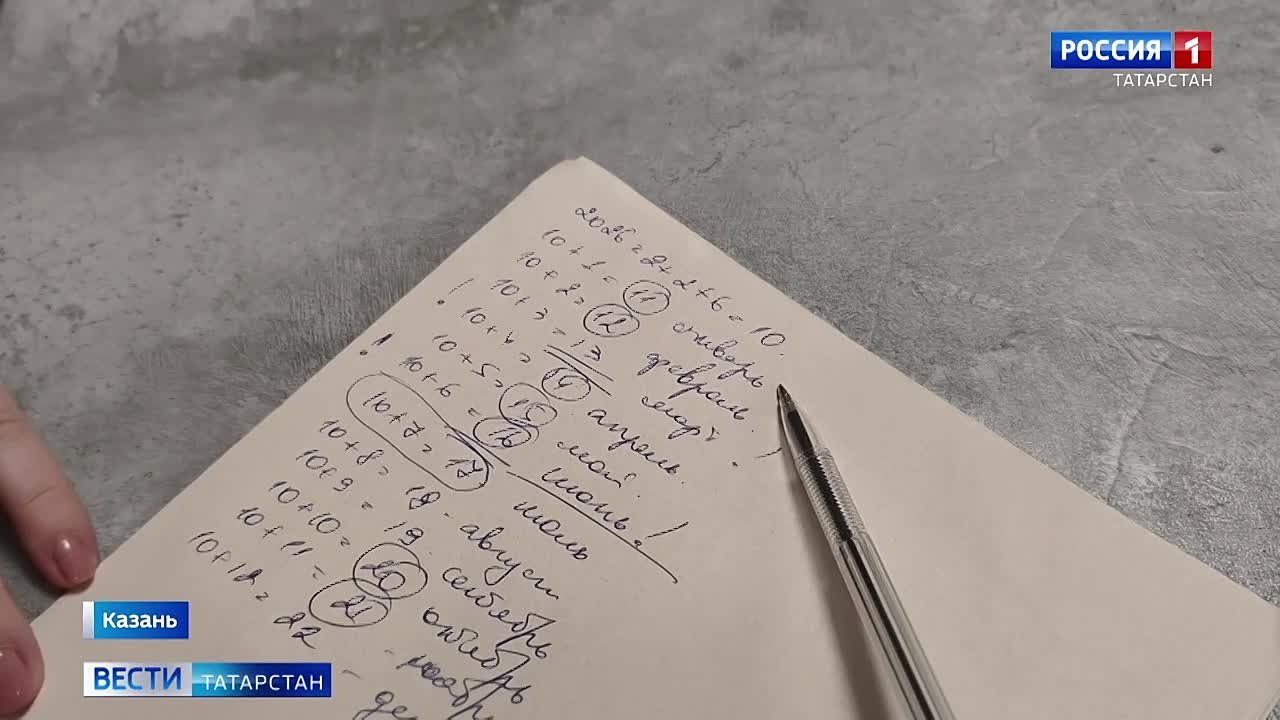 РОССИЯ 1
ТАТАРСТАН
2026 = 2+2+6 = 10.
10+1 = 11 январь
10+2 = 12 февраль.
! 10+3 = 13 март. !
10+4 = 14 апрель.
10+5 = 15 май.
! 10+6 = 16 июнь. !
10+7 = 17 июль
10+8 = 18 - август
10+9 = 19. сентябрь
10+10 = 20 октябрь
10+11 = 21 - ноябр
10+12 = 22 - де
Казань
ВЕСТИ ТАТАРСТАН